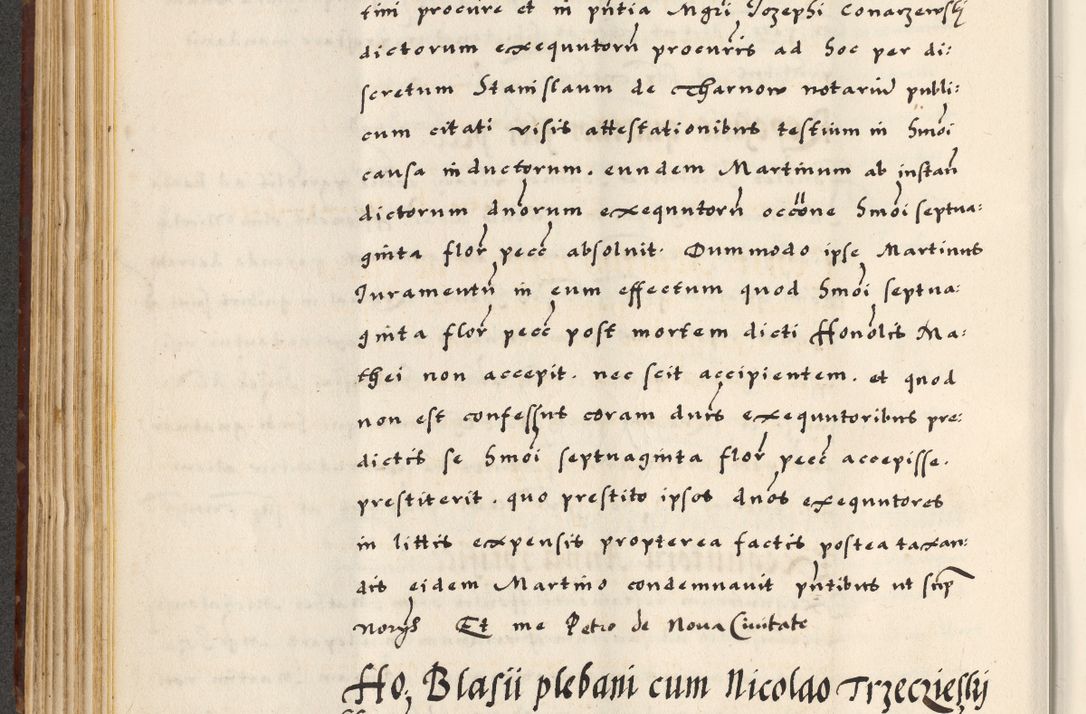 tini procure et in pñtia Mgri Jozephi Conarzewskj
dictorum exequutorũ procuris ad hoc per di:
scretum Stanislaum de Tharnow notariũ publi:
cum citati visis attestationibus testium in hmõi
causa inductorum. eundem Martinum ab instañ
dictorum dnorum exequutorũ occõne hmõi septua:
ginta flor pecc absoluit. Dummodo ipse Martinus
Juramentũ in eum effectum quod hmõi septua:
ginta flor pecc post mortem dicti Honolis Ma:
thei non accepit. nec scit accipientem. et quod
non est confessus coram dnis exequutoribus pre:
dictis se hmõi septuaginta flor pecc accepisse.
prestiterit. quo prestito ipsos dnõs exequutores
in littis expensis propterea factis postea taxan:
dis eidem Martino condemnauit pñtibus ut sup
Norys Et me Petro de Nova Ciuitate
Ho: Blasii plebani cum Nicolao Trzeczieskij